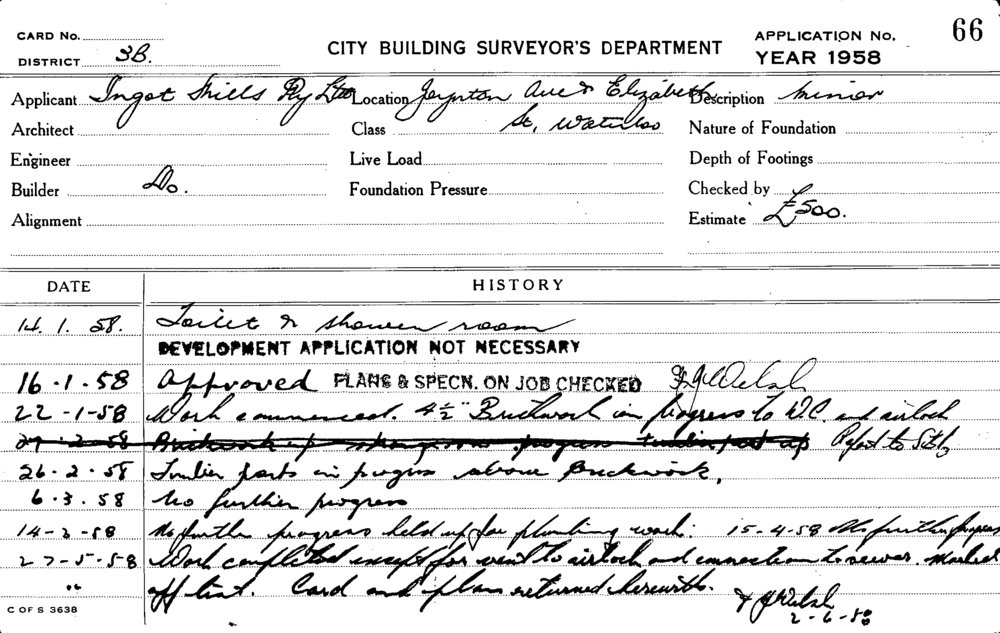 CARD No.
DISTRICT 3B.
CITY BUILDING SURVEYOR'S DEPARTMENT
APPLICATION No. 66
YEAR 1958
Applicant Ingot Mills Pty Ltd Location Joynton Ave & Elizabeth Description Minor
Architect Class St, Waterloo Nature of Foundation
Engineer Live Load Depth of Footings
Builder Do. Foundation Pressure Checked by
Alignment Estimate £500.
DATE HISTORY
14. 1. 58. Toilet & shower room
DEVELOPMENT APPLICATION NOT NECESSARY
16 . 1 . 58 Approved PLANS & SPECN. ON JOB CHECKED
22 - 1 - 58 Work commenced. 4½" Brickwork in progress to W.C. and airlock
Brickwork up progress timber
26 . 2 . 58 Timber posts in progress above Brickwork.
6 . 3 . 58 No further progress
14 - 3 - 58 No further progress held up for plumbing work. 15-4-58 No further progress
27 - 5 - 58 Work completed except for vent to airlock and connection to sewer. Marked
" off list. Card and plans returned herewith.
2-6-58
C OF S 3638